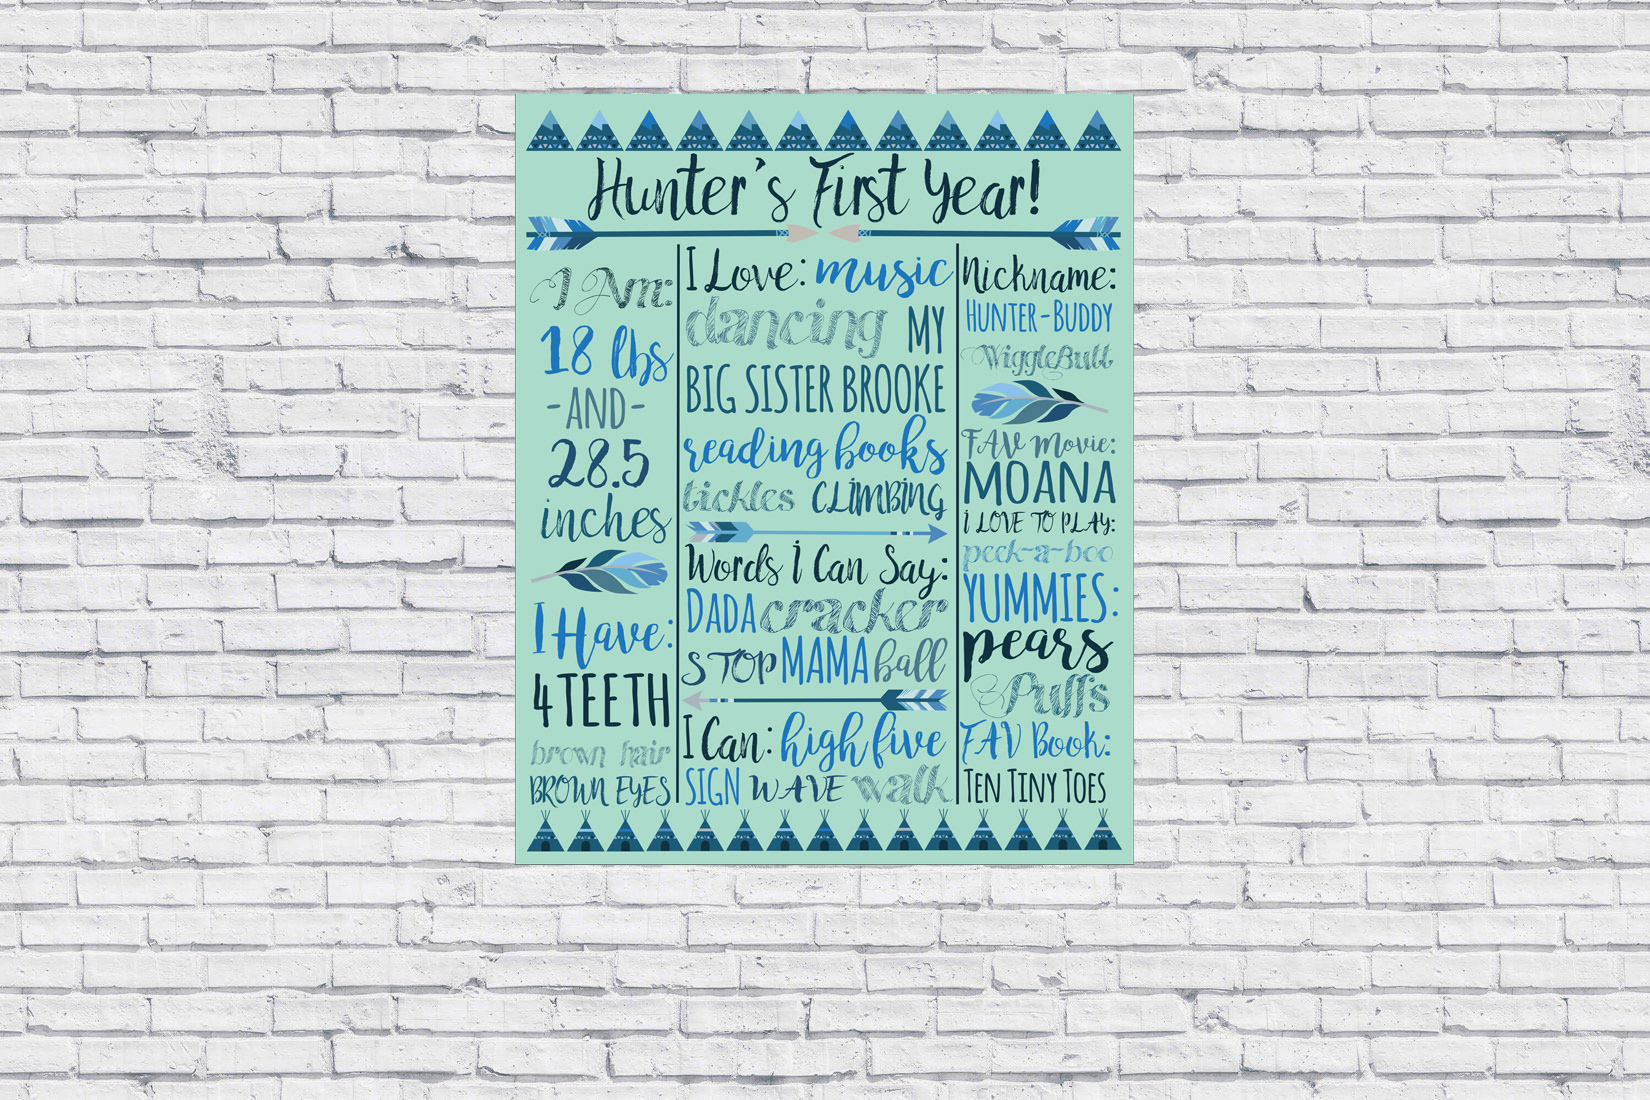 Hunter's First Year!
I Am:
18 lbs
-AND-
28.5
inches
I Have:
4 TEETH
brown hair
BROWN EYES
I Love: music
dancing MY
BIG SISTER BROOKE
reading books
tickles CLIMBING
Words I Can Say:
DADA cracker
STOP MAMA ball
I Can: high five
SIGN WAVE walk
Nickname:
HUNTER-BUDDY
WiggleButt
FAV Movie:
MOANA
I LOVE TO PLAY:
peek-a-boo
YUMMIES:
pears
& Puffs
FAV Book:
TEN TINY TOES